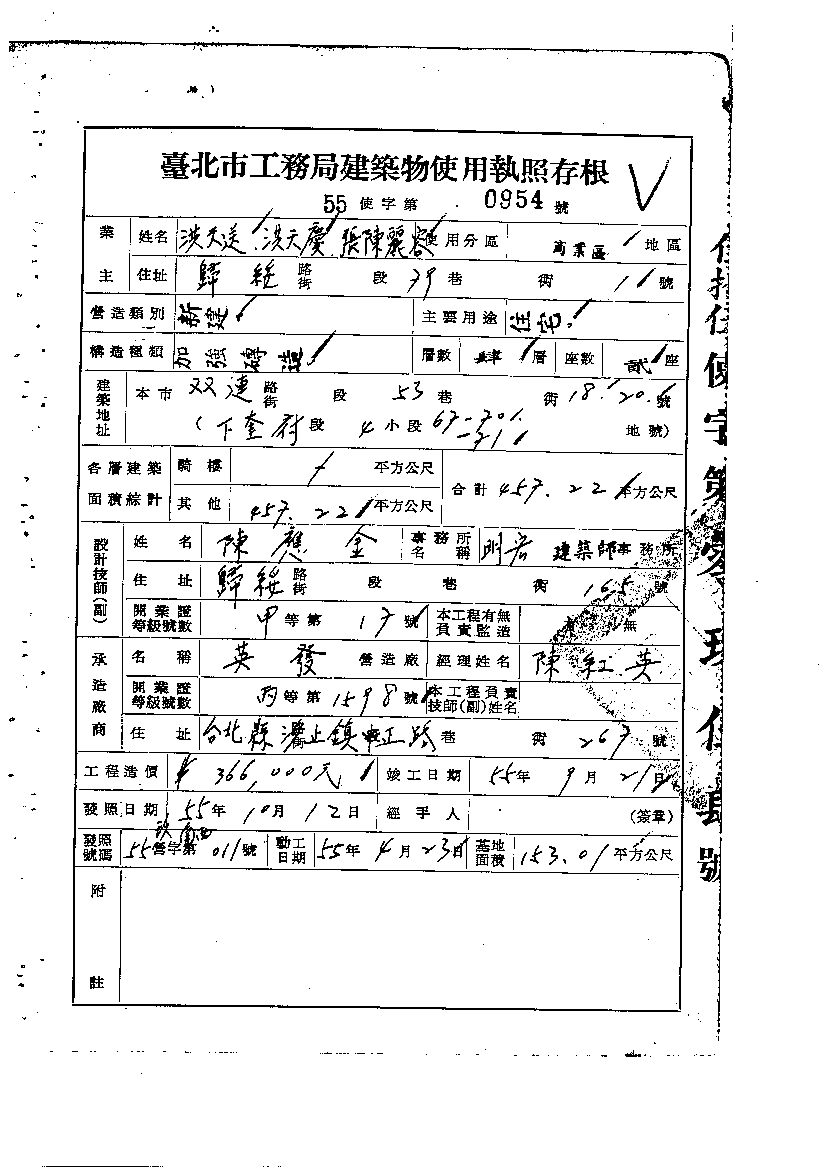 臺北市工務局建築物使用執照存根
55 使字第 0954 號
業主 姓名 洪天送 洪天慶 張陳麗容 使用分區 商業區 地區
住址 歸綏 路街 段 39 巷 街 11 號
營造類別 新建 主要用途 住宅
構造種類 加強磚造 層數 肆 層 座數 貳 座
建築地址 本市 双連 路街 段 53 巷 街 18. 20. 號
(下奎府段 4 小段 67-70 -71 地號)
各層建築面積綜計 騎樓 / 平方公尺 合計 457.22 平方公尺
其他 457.22 平方公尺
設計技師(副) 姓名 陳應金 事務所名稱 建築師事務所
住址 歸綏 路街 段 巷 街 165 號
開業證等級號數 甲等第 17 號 本工程有無負責監造 無
承造廠商 名稱 英發 營造廠 經理姓名 陳紅英
開業證等級號數 丙等第 1598 號 本工程負責技師(副)姓名
住址 台北縣 止鎮中正路 巷 街 267 號
工程造價 ¥ 366,000元 竣工日期 55年 9月 21日
發照日期 55年 10月 12日 經手人 (簽章)
發照號碼 55營字第 011號 動工日期 55年 4月 23日 基地面積 153.01 平方公尺
附註